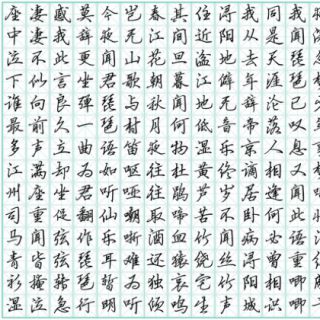 我闻琵琶已叹息又闻此语重唧唧
同是天涯沦落人相逢何必曾相识
我从去年辞帝京谪居卧病浔阳城
浔阳地僻无音乐终岁不闻丝竹声
住近湓江地低湿黄芦苦竹绕宅生
其间旦暮闻何物杜鹃啼血猿哀鸣
春江花朝秋月夜往往取酒还独倾
岂无山歌与村笛呕哑嘲哳难为听
今夜闻君琵琶语如听仙乐耳暂明
莫辞更坐弹一曲为君翻作琵琶行
感我此言良久立却坐促弦弦转急
凄凄不似向前声满座重闻皆掩泣
座中泣下谁最多江州司马青衫湿